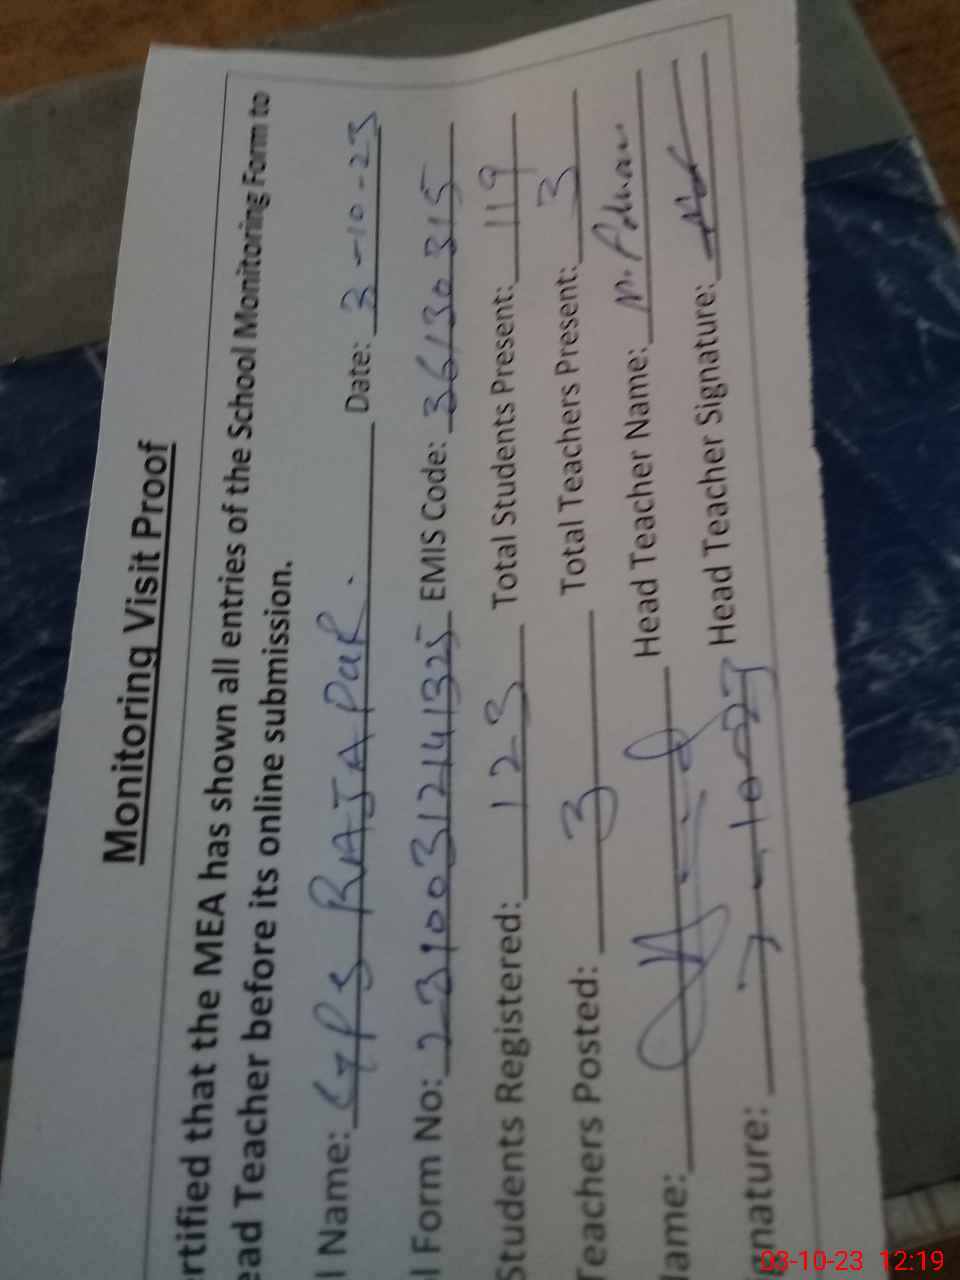 Monitoring Visit Proof
ertified that the MEA has shown all entries of the School Monitoring Form to
ead Teacher before its online submission.
l Name: GPS RAJAPUR. Date: 3-10-23
l Form No: 23100312141325 EMIS Code: 36130315
Students Registered: 123 Total Students Present: 119
Teachers Posted: 3 Total Teachers Present: 3
lame: Head Teacher Name:
gnature: Head Teacher Signature:
03-10-23 12:19